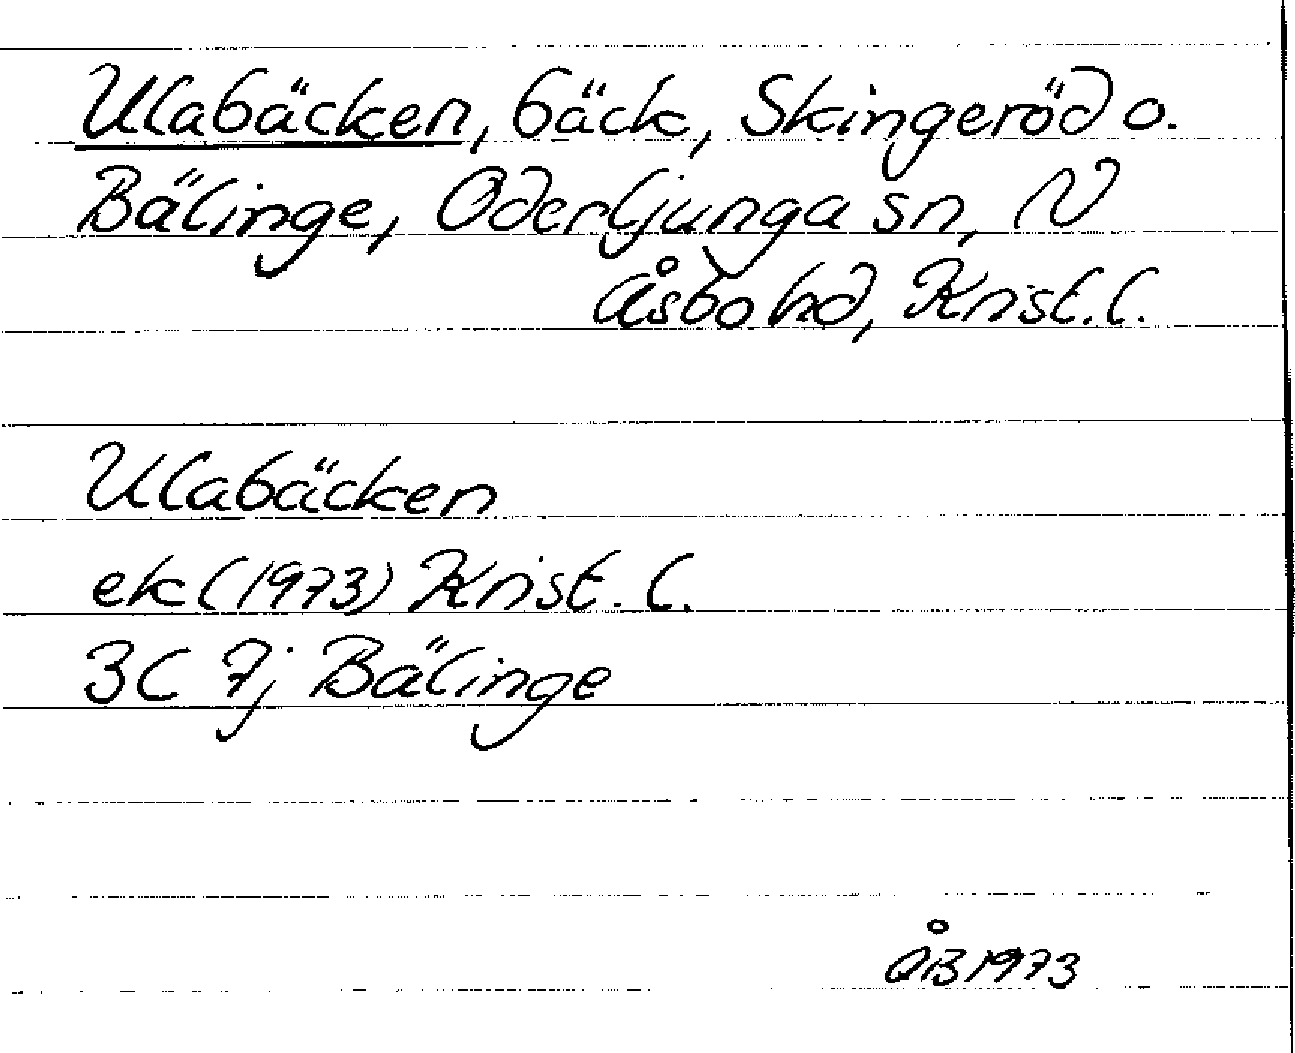 Ulabäcken, bäck, Skingeröd o.
Bälinge, Oderljunga sn, N
Åsbo hd, Krist. l.
Ulabäcken
ek (1973) Krist. l.
3C 7j Bälinge
ÅB 1973